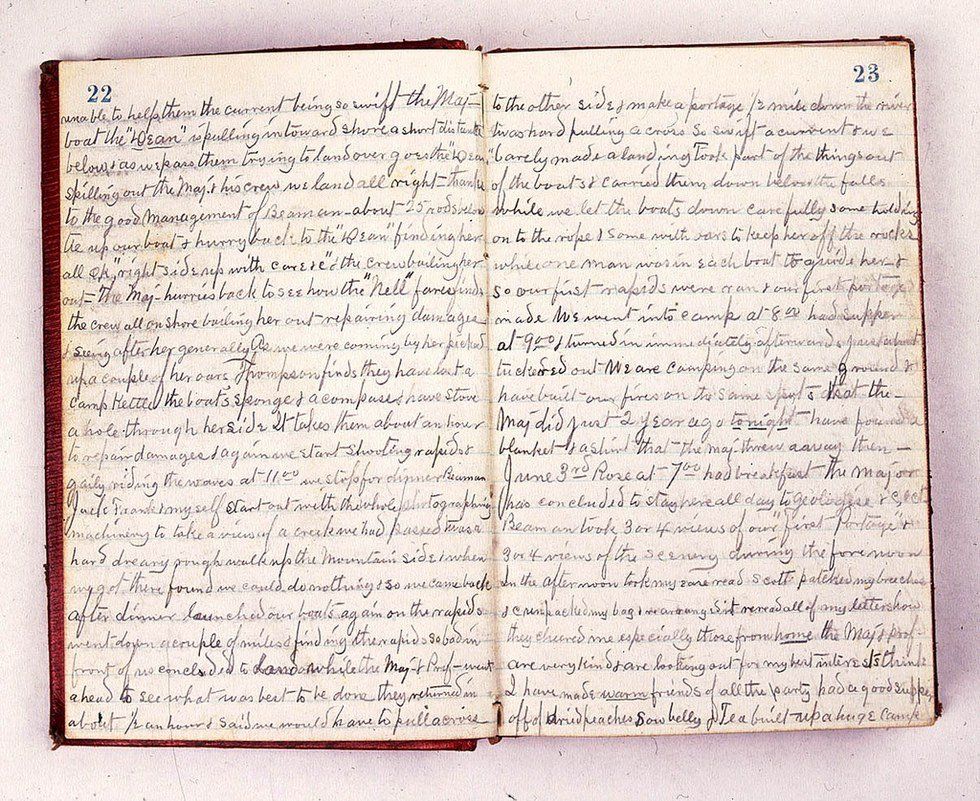 22
unable to help them the current being so swift the Maj-
boat the "Dean" is pulling in toward shore a short distance
below & as we pass them trying to land over goes the "Dean"
spilling out the Maj & his crew we land all right - thanks
to the good management of Beaman - about 25 rods below
tie up our boat & hurry back to the "Dean" finding her
all OK "right side up with care" & the crew bailing her
out - The Maj - hurries back to see how the "Nell" fares finds
the crew all on shore bailing her out repairing damages
& seeing after her generally As we were coming by her picked
up a couple of her oars Thompson finds they have lost a
camp Kettle the boat's sponge & a compass & have stove
a hole through her side It takes them about an hour
to repair damages & again we start shooting rapids &
gaily riding the waves at 11.00 we stop for dinner Beaman
Jack & myself start out with the whole photographing
machinery to take a view of a creek we had passed twas a
hard dreary rough walk up the Mountain side & when
we got there found we could do nothing & so we came back
after dinner launched our boats again on the rapids
went down a couple of miles & finding the rapids so bad in
front of us concluded to land while the Maj & Prof - went
ahead to see what was best to be done they returned in
about ½ an hour & said we would have to pull across
23
to the other side & make a portage ½ mile down the river
twas hard pulling across so swift a current & we
barely made a landing Took part of the things out
of the boats & carried them down below the falls
while we let the boats down carefully some holding
on to the rope & some with oars to keep her off the rocks
while one man was in each boat to guide her &
so our first rapids were ran & our first portage
made We went into camp at 8.00 had supper
at 9.00 & turned in immediately afterwards just about
tuckered out We are camping on the same ground &
have built our fires on the same spots that the -
Maj did just 2 year ago tonight - have found a
blanket & a shirt that the maj threw away then -
June 3rd Rose at 7.00 had breakfast the Major
has concluded to stay here all day to geologise &
Beaman took 3 or 4 views of our "first Portage" &
3 or 4 views of the scenery during the forenoon
In the afternoon took my ease read Scott patched my breeches
& c unpacked my bag & rearranged it reread all of my letters how
they cheered me especially those from home the Maj & Prof -
are very kind & are looking out for my best interests think
I have made warm friends of all the party had a good supper
off of dried peaches Sow belly & Tea built up a huge Camp